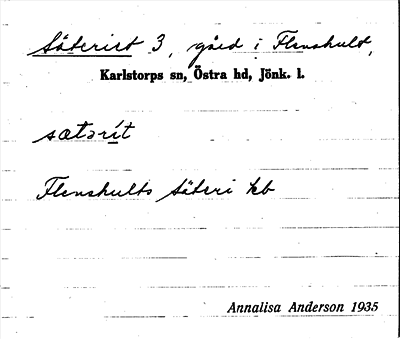 Säteriet 3, gård i Flenshult,
Karlstorps sn, Östra hd, Jönk. l.
sætərít
Flenshults säteri kb
Annalisa Anderson 1935